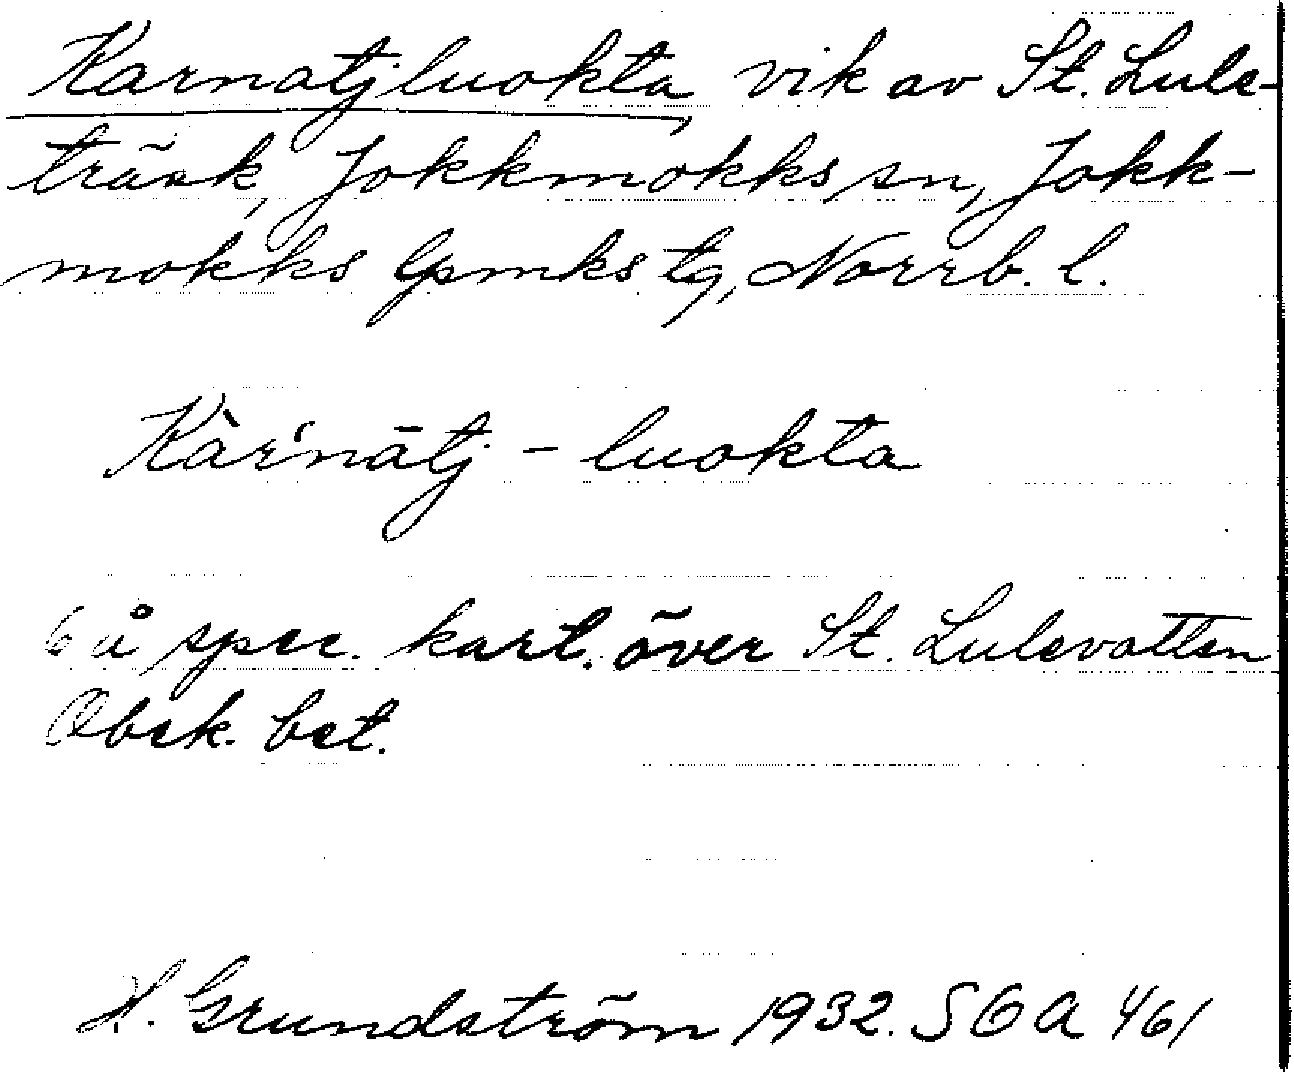 Karnatjluokta, vik av St. Lule-
träsk, Jokkmokks sn, Jokk-
mokks lpmks tg, Norrb. l.
Kàr'nātj - luokta
6 å spec. kart. över St. Lulevatten
Obek. bet.
H. Grundström 1932. SOA 461